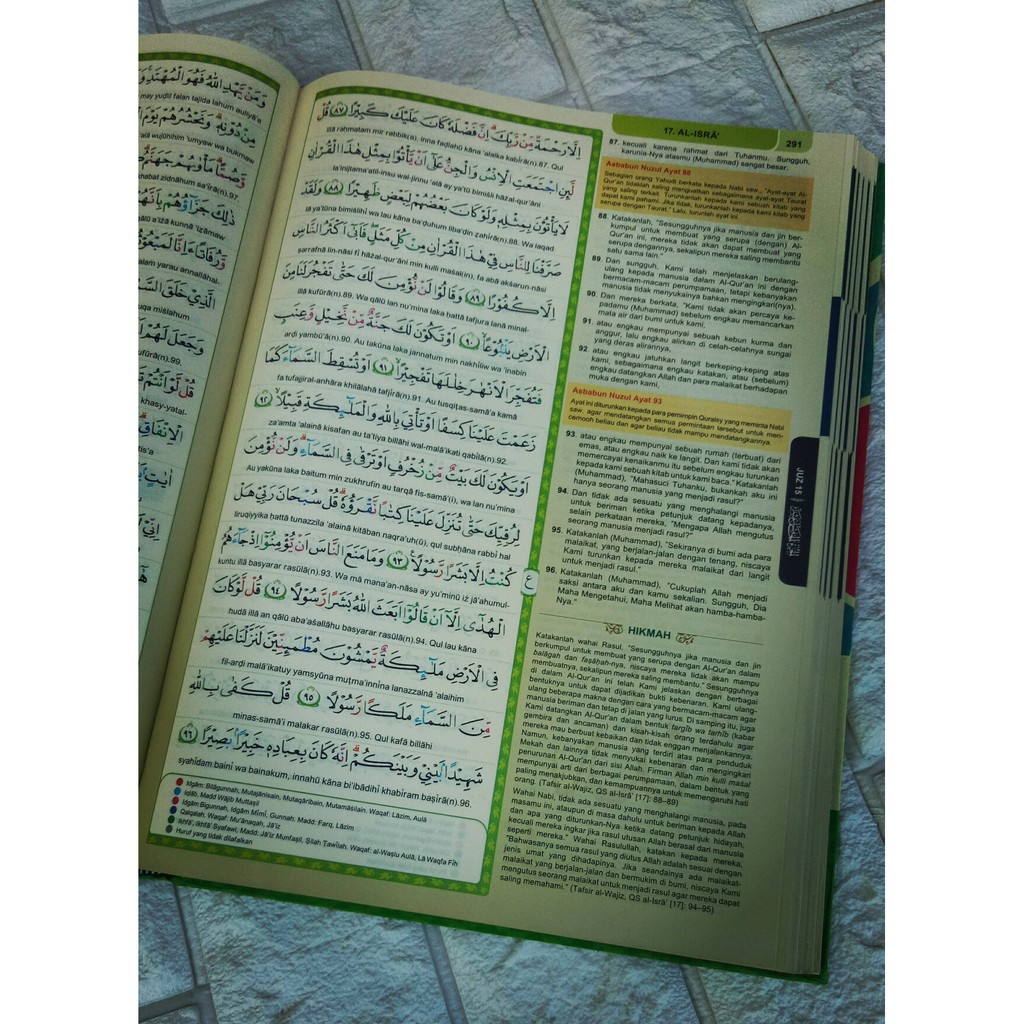 وَمَنْ يَّهْدِ اللّٰهُ فَهُوَ الْمُهْتَدِۚ
may yuḍlil falan tajida lahum auliyā'a
مِنْ دُوْنِهٖۗ وَنَحْشُرُهُمْ يَوْمَ
'alā wujūhihim 'umyaw wa bukmaw
وَّصُمًّاۗ مَأْوٰىهُمْ جَهَنَّمُۗ
khabat zidnāhum sa'īrā(n).97.
ذٰلِكَ جَزَاۤؤُهُمْ بِاَنَّهُمْ
وَّرُفَاتًا ءَاِنَّا لَمَبْعُوْثُوْنَ
alam yarau annallāhal-
الَّذِيْ خَلَقَ
وَجَعَلَ لَهُمْ
kufūrā(n).99.
قُلْ لَّوْ اَنْتُمْ
khasy-yatal-
الْاِنْفَاقِۗ
17. AL-ISRĀ'
291
اِلَّا رَحْمَةً مِّنْ رَّبِّكَۗ اِنَّ فَضْلَهٗ كَانَ عَلَيْكَ كَبِيْرًا ٨٧ قُلْ
illā raḥmatam mir rabbik(a), inna faḍlahū kāna 'alaika kabīrā(n).87. Qul
لَّىِٕنِ اجْتَمَعَتِ الْاِنْسُ وَالْجِنُّ عَلٰٓى اَنْ يَّأْتُوْا بِمِثْلِ هٰذَا الْقُرْاٰنِ
la'inijtama'atil-insu wal-jinnu 'alā ay ya'tū bimiṡli hāżal-qur'āni
لَا يَأْتُوْنَ بِمِثْلِهٖ وَلَوْ كَانَ بَعْضُهُمْ لِبَعْضٍ ظَهِيْرًا ٨٨ وَلَقَدْ
lā ya'tūna bimiṡlihī wa lau kāna ba'ḍuhum liba'ḍin ẓahīrā(n).88. Wa laqad
صَرَّفْنَا لِلنَّاسِ فِيْ هٰذَا الْقُرْاٰنِ مِنْ كُلِّ مَثَلٍۖ فَاَبٰىٓ اَكْثَرُ النَّاسِ
ṣarrafnā lin-nāsi fī hāżal-qur'āni min kulli maṡal(in), fa abā akṡarun-nāsi
اِلَّا كُفُوْرًا ٨٩ وَقَالُوْا لَنْ نُّؤْمِنَ لَكَ حَتّٰى تَفْجُرَ لَنَا مِنَ
illā kufūrā(n).89. Wa qālū lan nu'mina laka ḥattā tafjura lanā minal-
الْاَرْضِ يَنْۢبُوْعًاۙ ٩٠ اَوْ تَكُوْنَ لَكَ جَنَّةٌ مِّنْ نَّخِيْلٍ وَّعِنَبٍ
arḍi yambū'ā(n).90. Au takūna laka jannatum min nakhīliw wa 'inabin
فَتُفَجِّرَ الْاَنْهٰرَ خِلٰلَهَا تَفْجِيْرًاۙ ٩١ اَوْ تُسْقِطَ السَّمَاۤءَ كَمَا
fa tufajjiral-anhāra khilālahā tafjīrā(n).91. Au tusqiṭas-samā'a kamā
زَعَمْتَ عَلَيْنَا كِسَفًا اَوْ تَأْتِيَ بِاللّٰهِ وَالْمَلٰۤىِٕكَةِ قَبِيْلًاۙ ٩٢
za'amta 'alainā kisafan au ta'tiya billāhi wal-malā'ikati qabīlā(n).92.
اَوْ يَكُوْنَ لَكَ بَيْتٌ مِّنْ زُخْرُفٍ اَوْ تَرْقٰى فِى السَّمَاۤءِۗ وَلَنْ نُّؤْمِنَ
Au yakūna laka baitum min zukhrufin au tarqā fis-samā'(i), wa lan nu'mina
لِرُقِيِّكَ حَتّٰى تُنَزِّلَ عَلَيْنَا كِتٰبًا نَّقْرَؤُهٗۗ قُلْ سُبْحَانَ رَبِّيْ هَلْ
liruqiyyika ḥattā tunazzila 'alainā kitāban naqra'uh(ū), qul subḥāna rabbī hal
كُنْتُ اِلَّا بَشَرًا رَّسُوْلًا ٩٣ وَمَا مَنَعَ النَّاسَ اَنْ يُّؤْمِنُوْٓا اِذْ جَاۤءَهُمُ
kuntu illā basyarar rasūlā(n).93. Wa mā mana'an-nāsa ay yu'minū iż jā'ahumul-
الْهُدٰٓى اِلَّآ اَنْ قَالُوْٓا اَبَعَثَ اللّٰهُ بَشَرًا رَّسُوْلًا ٩٤ قُلْ لَّوْ كَانَ
hudā illā an qālū aba'aṡallāhu basyarar rasūlā(n).94. Qul lau kāna
فِى الْاَرْضِ مَلٰۤىِٕكَةٌ يَّمْشُوْنَ مُطْمَىِٕنِّيْنَ لَنَزَّلْنَا عَلَيْهِمْ
fil-arḍi malā'ikatuy yamsyūna muṭma'innīna lanazzalnā 'alaihim
مِّنَ السَّمَاۤءِ مَلَكًا رَّسُوْلًا ٩٥ قُلْ كَفٰى بِاللّٰهِ
minas-samā'i malakar rasūlā(n).95. Qul kafā billāhi
شَهِيْدًاۢ بَيْنِيْ وَبَيْنَكُمْۗ اِنَّهٗ كَانَ بِعِبَادِهٖ خَبِيْرًاۢ بَصِيْرًا ٩٦
syahīdam bainī wa bainakum, innahū kāna bi'ibādihī khabīram baṣīrā(n).96.
ع
Idgām: Bilāgunnah, Mutajānisain, Mutaqāribain, Mutamāṡilain. Waqaf: Lāzim, Aulā
Iqlāb, Madd Wājib Muttaṣil
Idgām Bigunnah, Idgām Mīmī, Gunnah, Madd: Farq, Lāzim
Qalqalah. Waqaf: Mu'ānaqah, Jā'iz
Ikhfā', Ikhfā' Syafawī, Madd: Jā'iz Munfaṣil, Ṣilah Ṭawīlah. Waqaf: al-Waṣlu Aulā, Lā Waqfa Fīh
Huruf yang tidak dilafalkan
87. kecuali karena rahmat dari Tuhanmu. Sungguh,
karunia-Nya atasmu (Muhammad) sangat besar.
Asbabun Nuzul Ayat 88
Sebagian orang Yahudi berkata kepada Nabi saw., "Ayat-ayat Al-
Qur'an tidaklah saling menguatkan sebagaimana ayat-ayat Taurat
yang saling terkait. Turunkanlah kepada kami sebuah kitab yang
dapat kami pahami. Jika tidak, turunkanlah kepada kami kitab yang
serupa dengan Taurat." Lalu, turunlah ayat ini.
88. Katakanlah, "Sesungguhnya jika manusia dan jin ber-
kumpul untuk membuat yang serupa (dengan) Al-
Qur'an ini, mereka tidak akan dapat membuat yang
serupa dengannya, sekalipun mereka saling membantu
satu sama lain."
89. Dan sungguh, Kami telah menjelaskan berulang-
ulang kepada manusia dalam Al-Qur'an ini dengan
bermacam-macam perumpamaan, tetapi kebanyakan
manusia tidak menyukainya bahkan mengingkari(nya).
90. Dan mereka berkata, "Kami tidak akan percaya ke-
padamu (Muhammad) sebelum engkau memancarkan
mata air dari bumi untuk kami,
91. atau engkau mempunyai sebuah kebun kurma dan
anggur, lalu engkau alirkan di celah-celahnya sungai
yang deras alirannya,
92. atau engkau jatuhkan langit berkeping-keping atas
kami, sebagaimana engkau katakan, atau (sebelum)
engkau datangkan Allah dan para malaikat berhadapan
muka dengan kami,
Asbabun Nuzul Ayat 93
Ayat ini diturunkan kepada para pemimpin Quraisy yang meminta Nabi
saw. agar mendatangkan semua permintaan tersebut untuk men-
cemooh beliau dan agar beliau tidak mampu mendatangkannya.
93. atau engkau mempunyai sebuah rumah (terbuat) dari
emas, atau engkau naik ke langit. Dan kami tidak akan
memercayai kenaikanmu itu sebelum engkau turunkan
kepada kami sebuah kitab untuk kami baca." Katakanlah
(Muhammad), "Mahasuci Tuhanku, bukankah aku ini
hanya seorang manusia yang menjadi rasul?"
94. Dan tidak ada sesuatu yang menghalangi manusia
untuk beriman ketika petunjuk datang kepadanya,
selain perkataan mereka, "Mengapa Allah mengutus
seorang manusia menjadi rasul?"
95. Katakanlah (Muhammad), "Sekiranya di bumi ada para
malaikat, yang berjalan-jalan dengan tenang, niscaya
Kami turunkan kepada mereka malaikat dari langit
untuk menjadi rasul."
96. Katakanlah (Muhammad), "Cukuplah Allah menjadi
saksi antara aku dan kamu sekalian. Sungguh, Dia
Maha Mengetahui, Maha Melihat akan hamba-hamba-
Nya."
HIKMAH
Katakanlah wahai Rasul, "Sesungguhnya jika manusia dan jin
berkumpul untuk membuat yang serupa dengan Al-Qur'an dalam
balāgah dan faṣāḥah-nya, niscaya mereka tidak akan mampu
membuatnya, sekalipun mereka saling membantu." Sesungguhnya
di dalam Al-Qur'an ini telah Kami jelaskan dengan berbagai
bentuknya untuk dapat dijadikan bukti kebenaran. Kami ulang-
ulang beberapa makna dengan cara yang bermacam-macam agar
manusia beriman dan tetap di jalan yang lurus. Di samping itu, juga
Kami datangkan Al-Qur'an dalam bentuk targīb wa tarhīb (kabar
gembira dan ancaman) dan kisah-kisah orang terdahulu agar
mereka mau berbuat kebaikan dan tidak enggan menjalankannya.
Namun, kebanyakan manusia yang terdiri atas para penduduk
Mekah dan lainnya tidak menyukai kebenaran dan mengingkari
penurunan Al-Qur'an dari sisi Allah. Firman Allah min kulli maṡal
mempunyai arti dari berbagai perumpamaan, dalam bentuk yang
paling menakjubkan, dan kemampuannya untuk memengaruhi hati
orang. (Tafsir al-Wajiz, QS al-Isrā' [17]: 88–89)
Wahai Nabi, tidak ada sesuatu yang menghalangi manusia, pada
masamu ini, ataupun di masa dahulu untuk beriman kepada Allah
dan apa yang diturunkan-Nya ketika datang petunjuk hidayah,
kecuali mereka ingkar jika rasul utusan Allah berasal dari manusia
seperti mereka." Wahai Rasulullah, katakan kepada mereka,
"Bahwasanya semua rasul yang diutus Allah adalah sesuai dengan
jenis umat yang dihadapinya. Jika seandainya ada malaikat-
malaikat yang berjalan-jalan dan bermukim di bumi, niscaya Kami
mengutus seorang malaikat untuk menjadi rasul agar mereka dapat
saling memahami." (Tafsir al-Wajiz, QS al-Isrā' [17]: 94–95)
JUZ 15